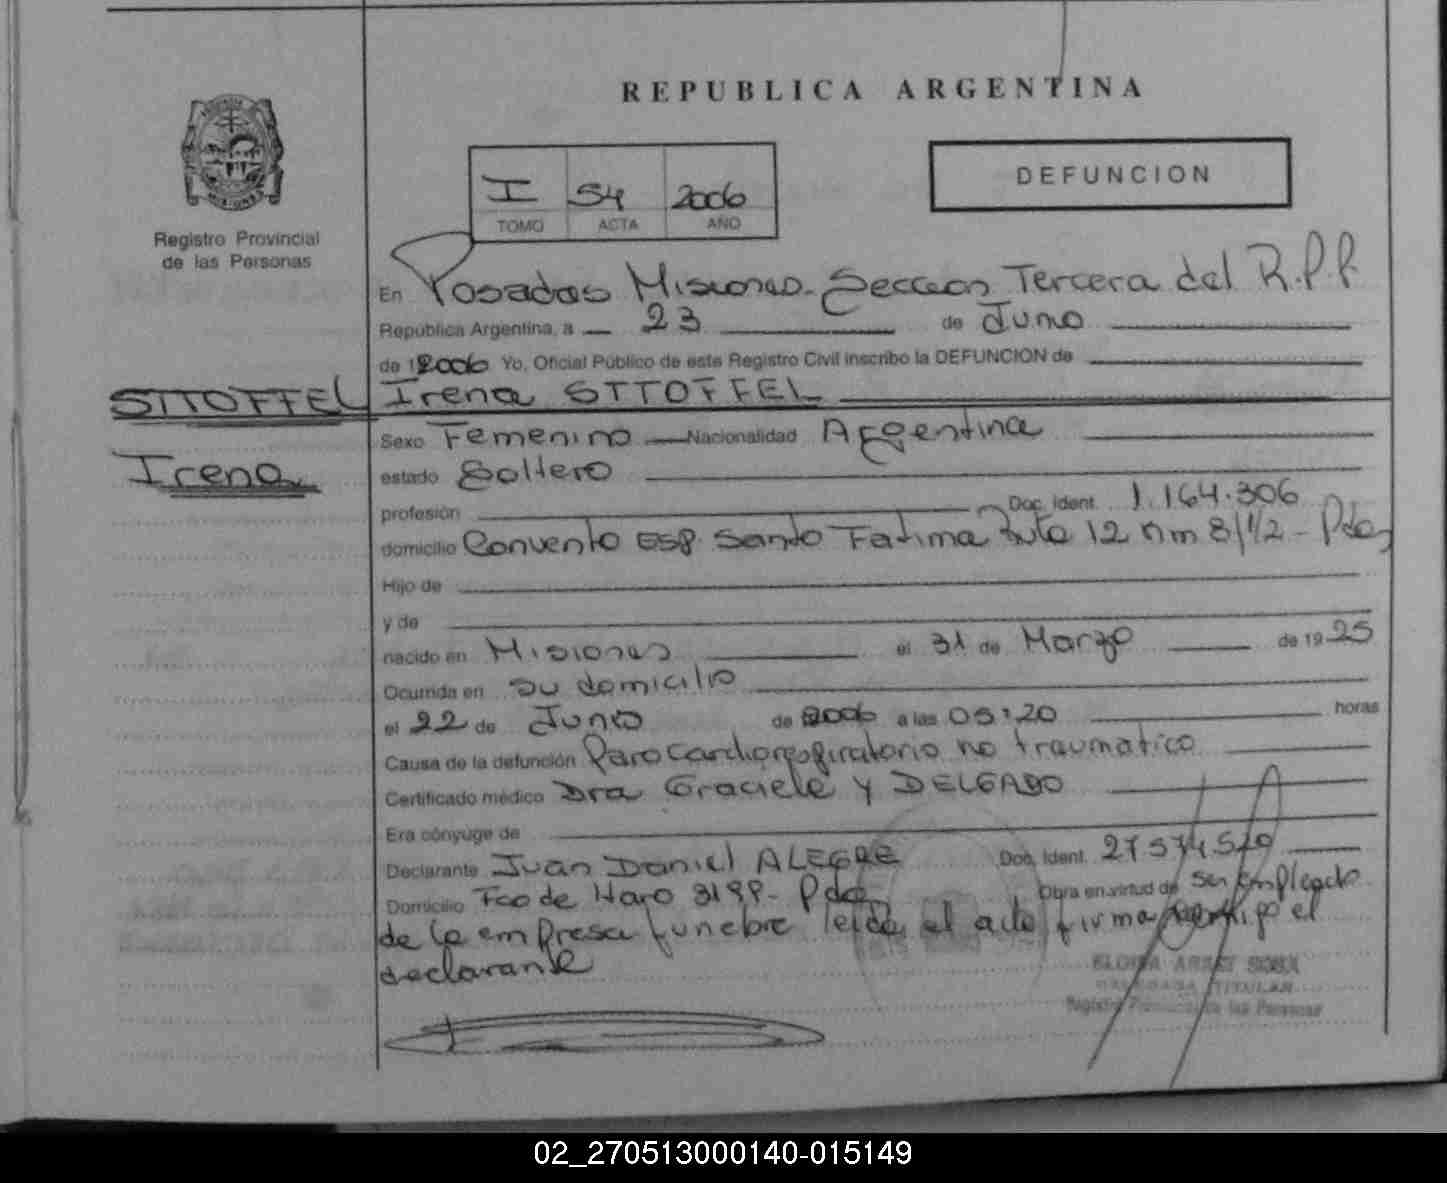 REPUBLICA ARGENTINA
I 54 2006
TOMO ACTA AÑO
DEFUNCION
Registro Provincial
de las Personas
En Posadas Misiones. Seccion Tercera del R.P.P.
República Argentina, a 23 de Junio
de 2006 Yo, Oficial Público de este Registro Civil inscribo la DEFUNCION de
STTOFFEL
Irena
Irena STTOFFEL
Sexo Femenino Nacionalidad Argentina
estado Soltero
profesión Doc. Ident. 1.164.306
domicilio Convento Esp. Santo Fatima Ruta 12 Km 8 1/2 - Pdas
Hijo de
y de
nacido en Misiones el 31 de Marzo de 1925
Ocurrida en su domicilio
el 22 de Junio de 2006 a las 05:20 horas
Causa de la defunción Paro cardiorespiratorio no traumatico
Certificado médico Dra Graciele Y DELGADO
Era cónyuge de
Declarante Juan Daniel ALEGRE Doc. Ident. 27574520
Domicilio Fco de Haro 3199 - Pdas Obra en virtud de ser empleado
de la empresa funebre leida el acta firma conmigo el
declarante
DELEGADA TITULAR
Registro Provincial de las Personas
02_270513000140-015149